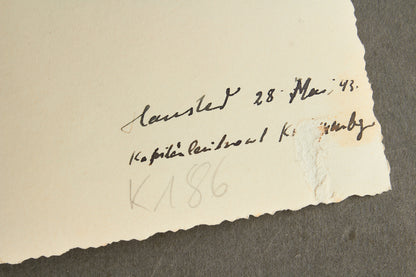 Hansted 28. Mai. 43.
Kapitänleutnant
K186